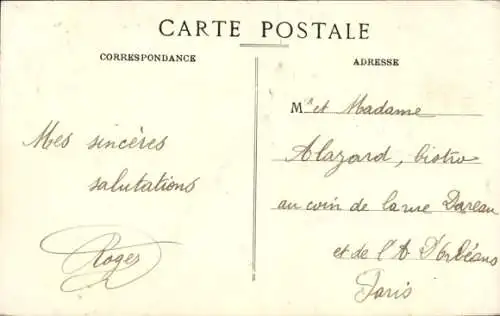 CARTE POSTALE
CORRESPONDANCE
ADRESSE
Mes sincères
salutations
Roger
Mr et Madame
Alazard, bistro
au coin de la rue Dareau
et de l'A D'Orléans
Paris